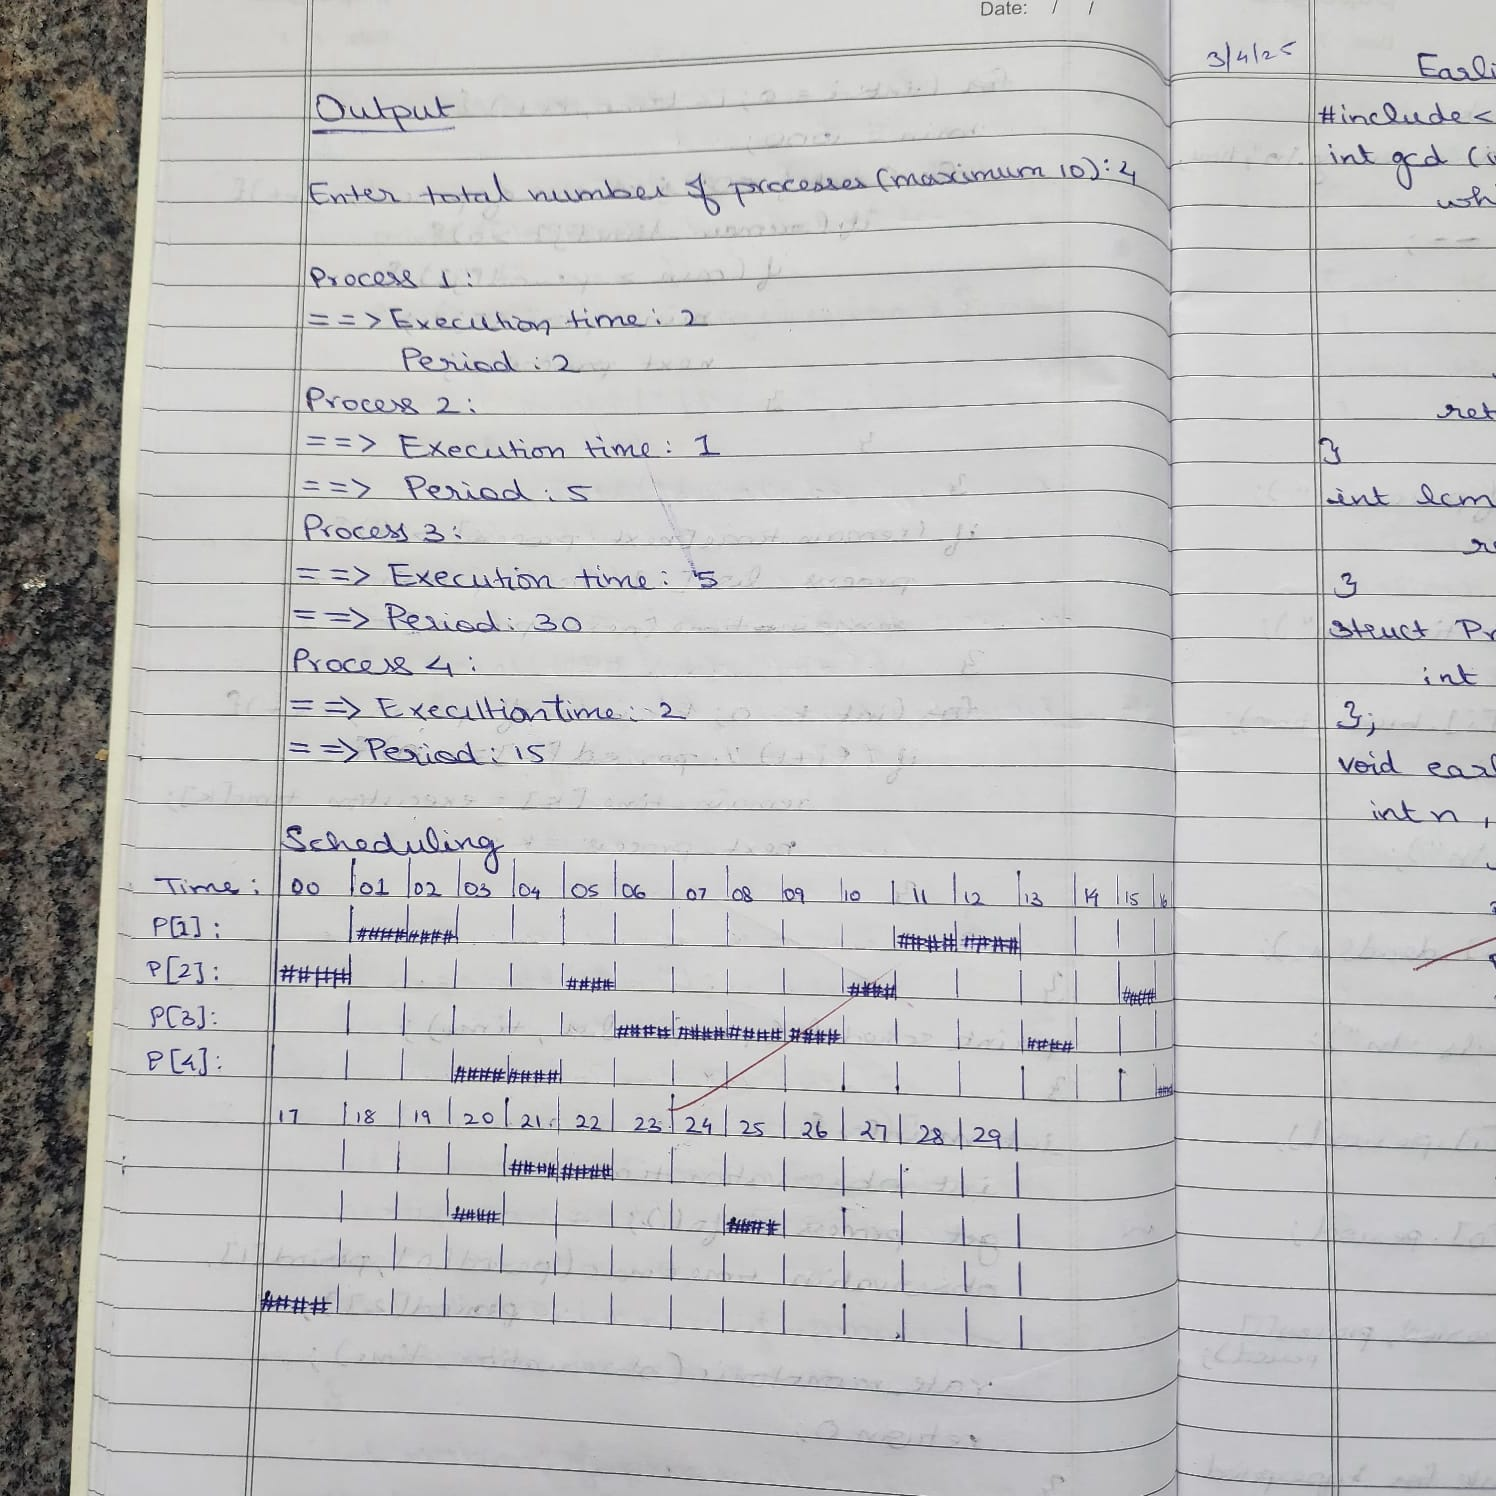 Date: / /
Output
Enter total number of processes (maximum 10): 4
Process 1:
==> Execution time: 2
Period : 2
Process 2:
==> Execution time: 1
==> Period : 5
Process 3:
==> Execution time: 5
==> Period: 30
Process 4:
==> Execultion time: 2
==> Period: 15
Scheduling
Time: | 00 | 01 | 02 | 03 | 04 | 05 | 06 | 07 | 08 | 09 | 10 | 11 | 12 | 13 | 14 | 15 | 16
P[1]: | #### #### | | | | | | | | #### #### | | |
P[2]: #### | | | | #### | | | | #### | | | | ####
P[3]: | | | | | #### #### #### #### | | | #### | |
P[4]: | | #### #### | | | | | | | | | | ####
17 | 18 | 19 | 20 | 21 | 22 | 23 | 24 | 25 | 26 | 27 | 28 | 29 |
| | | #### #### | | | | | | | |
| | #### | | | | #### | | | | |
| | | | | | | | | | | | |
#### | | | | | | | | | | | | |
3/4/25
#include <
int gcd (
3
int lcm
3
struct
int
3;
void
int n,